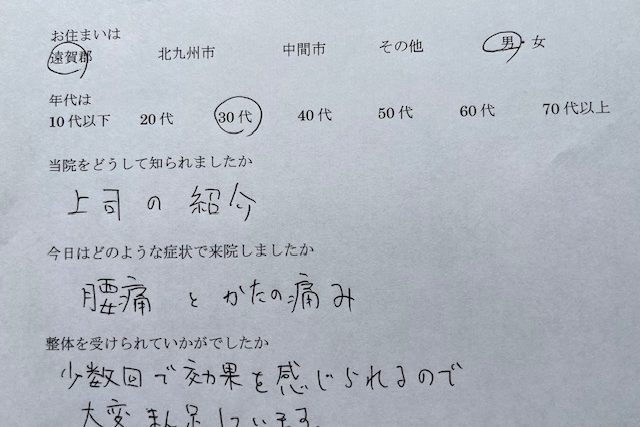 お住まいは
遠賀郡 北九州市 中間市 その他 男・女
年代は
10代以下 20代 30代 40代 50代 60代 70代以上
当院をどうして知られましたか
上司の紹介
今日はどのような症状で来院しましたか
腰痛とかたの痛み
整体を受けられていかがでしたか
少数回で効果を感じられるので
大変まん足しています。